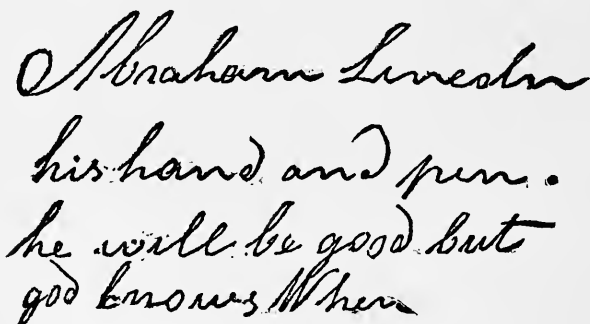 Abraham Lincoln
his hand and pen.
he will be good but
god knows When